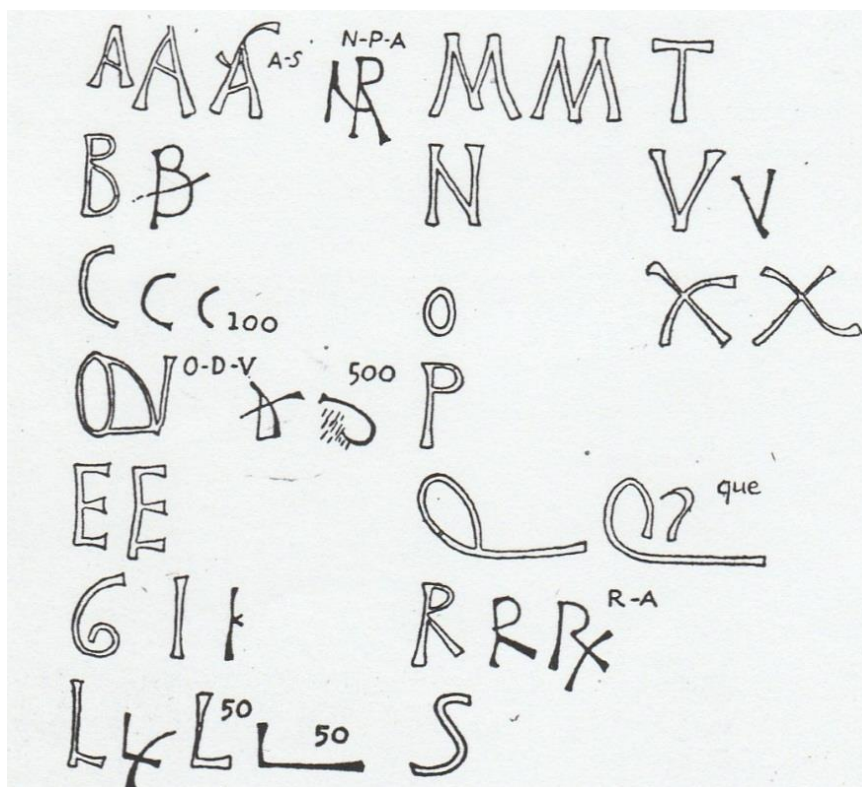 A A A A-S N-P-A M M T
B B N V V
C C C 100 O X X
O-D-V 500 P
E E Q Q que
G I R R R R-A
L L L 50 L 50 S